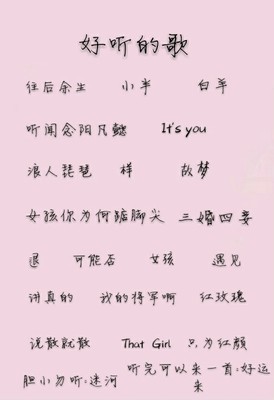 好听的歌
往后余生 小半 白羊
听闻念阳凡懿 It's you
浪人琵琶 样 故梦
女孩你为何踮脚尖 三婚四妻
退 可能否 女孩 遇见
讲真的 我的将军啊 红玫瑰
说散就散 That Girl 只为红颜
胆小勿听:迷河 听完可以来一首:好运来